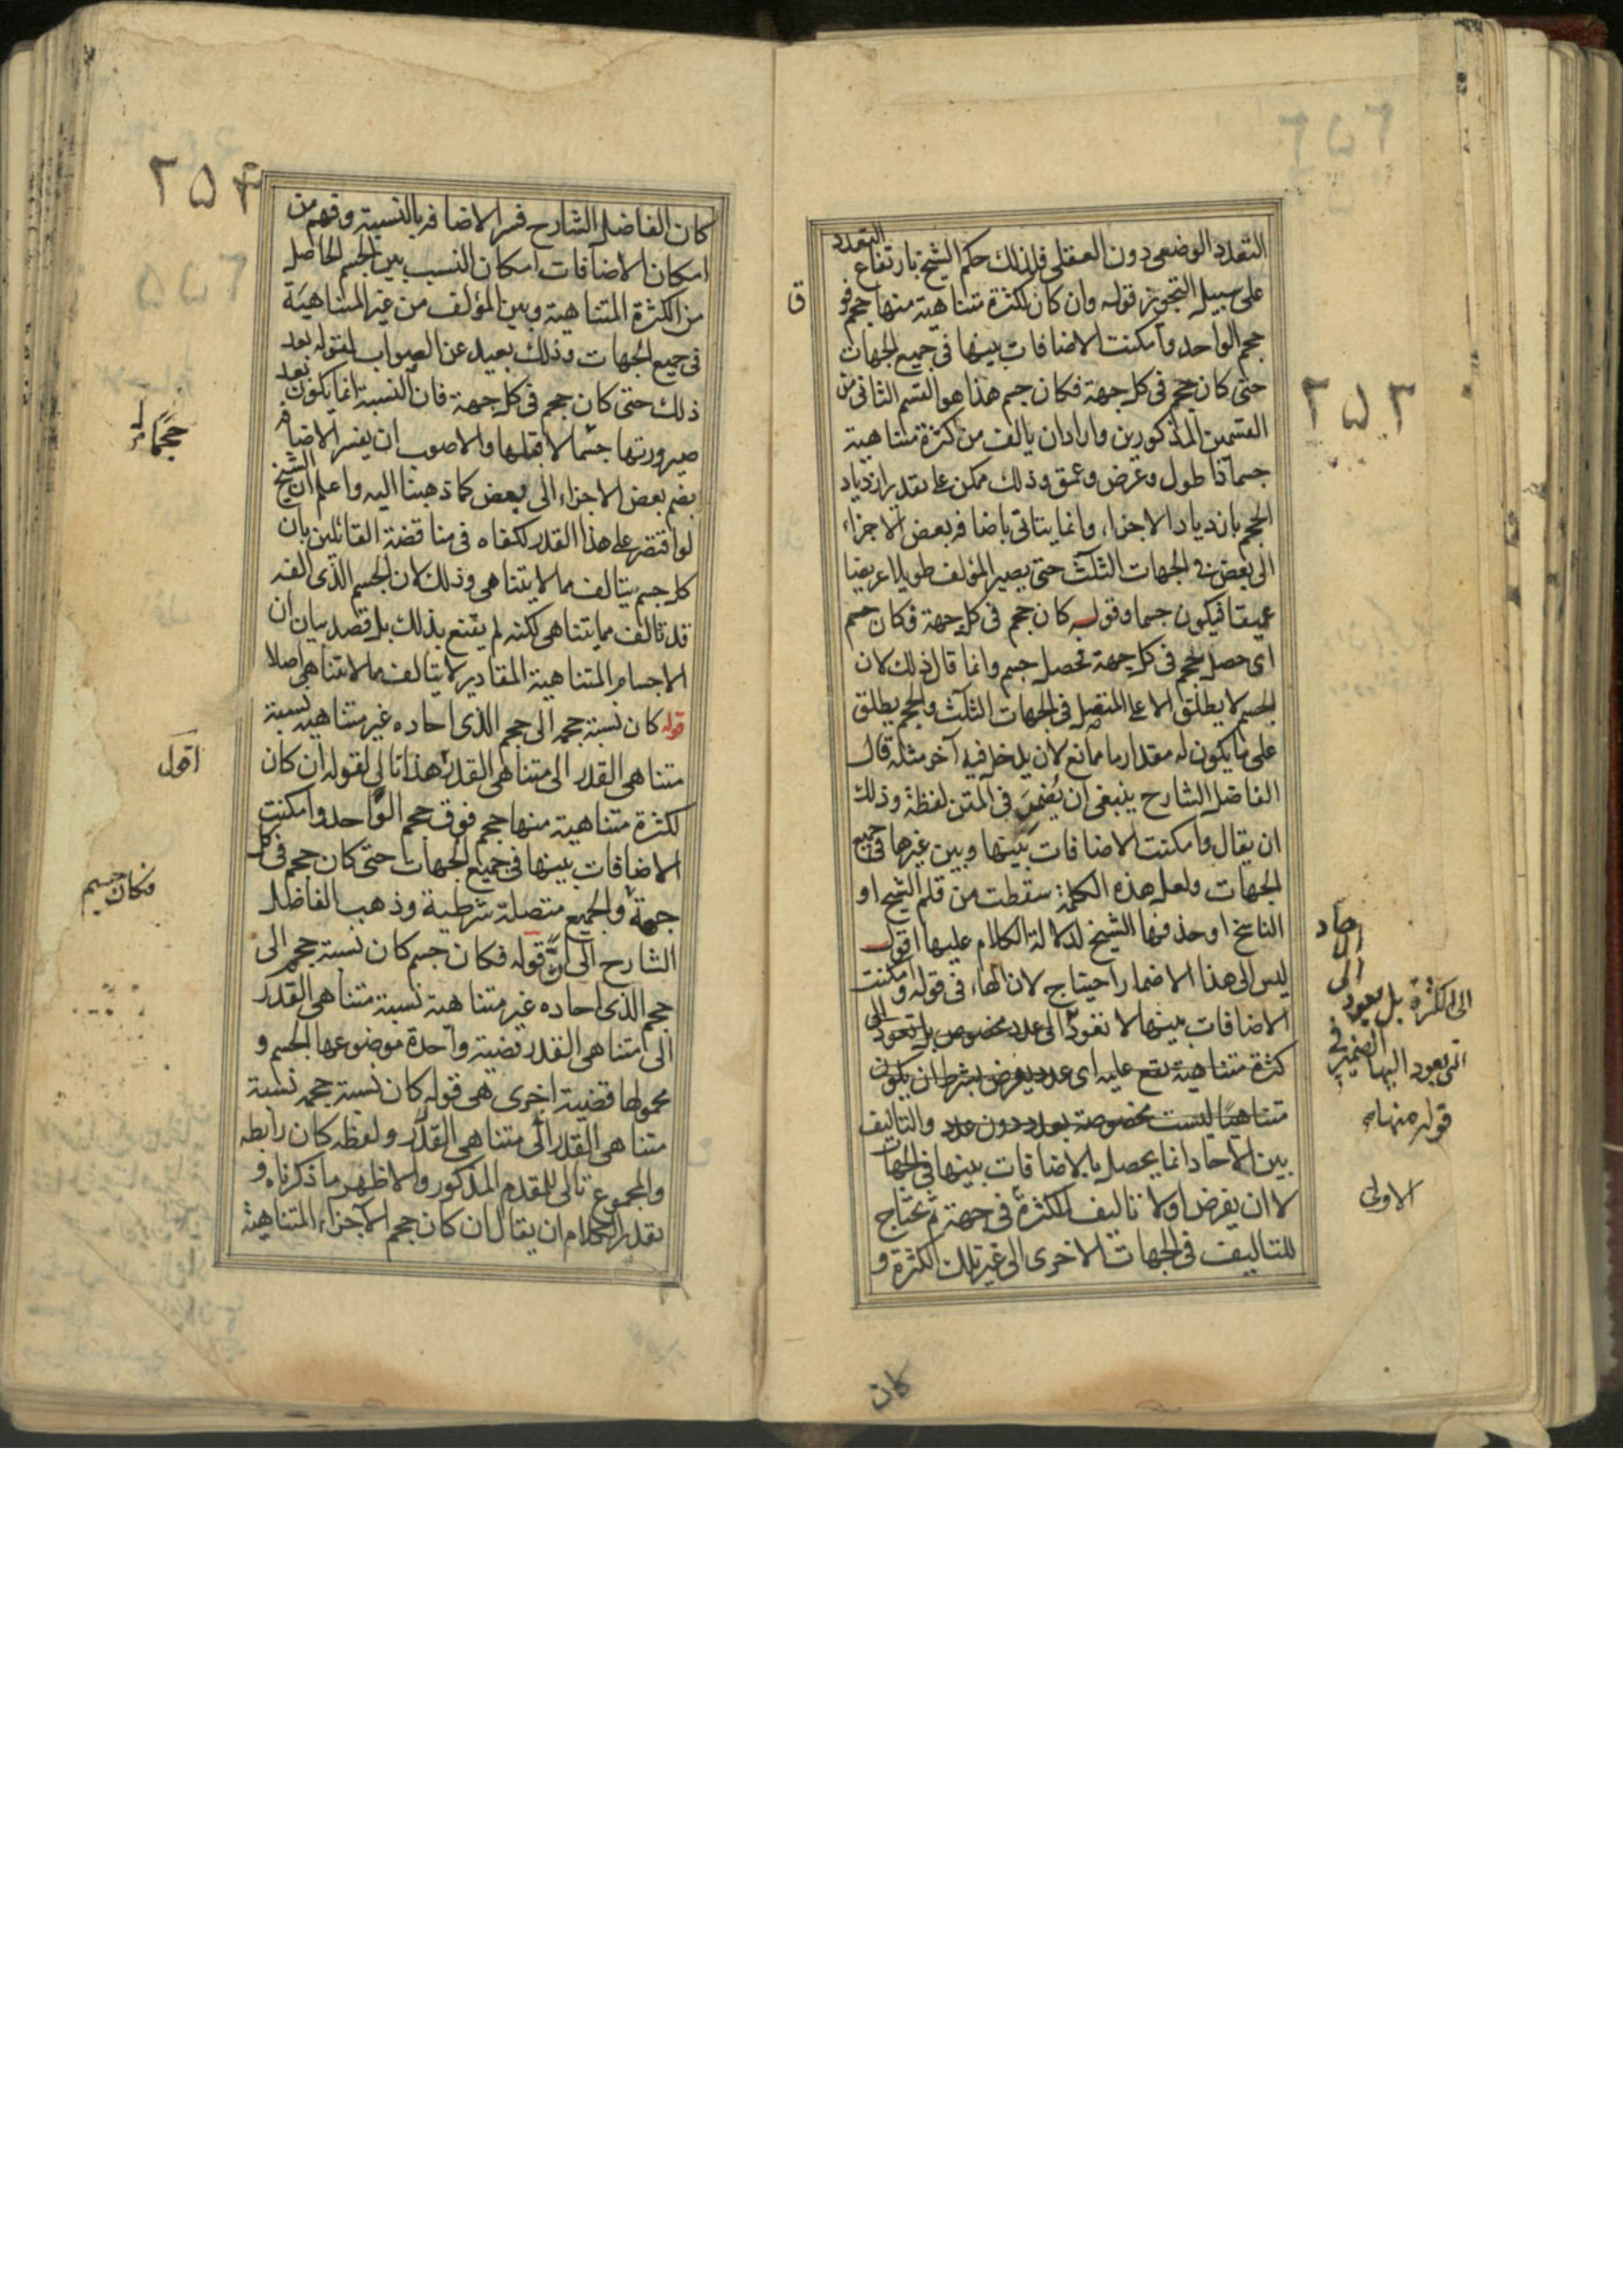 ٢٥٣
التعدد الوضعى دون العقلى فلذلك حكم الشيخ بارتفاع التعدد
على سبيل التجويز قوله وان كان لكثرة متناهية منها حجم فوق
حجم الواحد وامكنت الاضافات بينها فى جميع الجهات
حتى كان حجم فى كل جهة فكان جسم هذا هو القسم الثانى من
القسمين المذكورين واراد ان يالف من كثرة متناهية
جسما ذا طول وعرض وعمق وذلك ممكن على تقدير ازدياد
الحجم بازدياد الاجزاء وانما يتاتى باضافة بعض الاجزاء
الى بعض فى الجهات الثلث حتى يصير المؤلف طويلا عريضا
عميقا فيكون جسما وقوله كان حجم فى كل جهة فكان جسم
اى حصل حجم فى كل جهة فحصل جسم وانما قال ذلك لان
الجسم لا يطلق الا على المتصل فى الجهات الثلث والحجم يطلق
على ما يكون له مقدار ما مانع لان يدخل فيه آخر مثله قال
الفاضل الشارح ينبغى ان يُضمر فى المتن لفظة وذلك
ان يقال وامكنت الاضافات بينها وبين غيرها فى جميع
الجهات ولعل هذه الكلمة سقطت من قلم الشيخ او
الناسخ او حذفها الشيخ لدلالة الكلام عليها اقول
ليس الى هذا الاضمار احتياج لان الهاء فى قوله وامكنت
الاضافات بينها لا تعود الى عدد مخصوص بل تعود الى
كثرة متناهية تقع عليه اى عدد يفرض بشرط ان يكون
متناهيا ليست مخصوصة بعدد دون عدد والتاليف
بين الآحاد انما يحصل بالاضافات بينها فى الجهات
لا ان يفرض اولا تاليف الكثرة فى جهة ثم تحتاج
للتاليف فى الجهات الاخرى الى غير تلك الكثرة و
كان
ق
الى
الى الكثرة بل يعود
التى يعود اليها الضمير فى
قوله منها
الاولى
٢٥٤
كان الفاضل الشارح فسر الاضافة بالنسبة وفهم من
امكان الاضافات امكان النسب بين الجسم الحاصل
من الكثرة المتناهية وبين المؤلف من غير المتناهية
فى جميع الجهات وذلك بعيد عن الصواب لقوله بعد
ذلك حتى كان حجم فى كل جهة فان النسبة انما يكون بعد
صيرورتها جسما لا قبلها والاصوب ان يفسر الاضافة
بضم بعض الاجزاء الى بعض كما ذهبنا اليه واعلم ان الشيخ
لو اقتصر على هذا القدر لكفاه فى مناقضة القائلين بان
كل جسم يتالف مما لا يتناهى وذلك لان الجسم الذى الفه
قد تالف مما يتناهى لكنه لم يقنع بذلك بل قصد بيان ان
الاجسام المتناهية المقادير لا يتالف مما لا يتناهى اصلا
قوله كان نسبة حجمه الى حجم الذى آحاده غير متناهية نسبة
متناهى القدر الى متناهى القدر هذا تالى لقوله ان كان
لكثرة متناهية منها حجم فوق حجم الواحد وامكنت
الاضافات بينها فى جميع الجهات حتى كان حجم فى كل
جهة والجميع متصلة شرطية وذهب الفاضل
الشارح الى ان قوله فكان جسم كان نسبة حجمه الى
حجم الذى آحاده غير متناهية نسبة متناهى القدر
الى متناهى القدر قضية واحدة موضوعها الجسم و
محمولها قضية اخرى هى قوله كان نسبة حجمه نسبة
متناهى القدر الى متناهى القدر ولفظه كان رابطه
والمجموع تالى للمقدم المذكور والاظهر ما ذكرناه و
تقدير الكلام ان يقال ان كان حجم الاجزاء المتناهية
حجمًا
اقول
فكان جسم